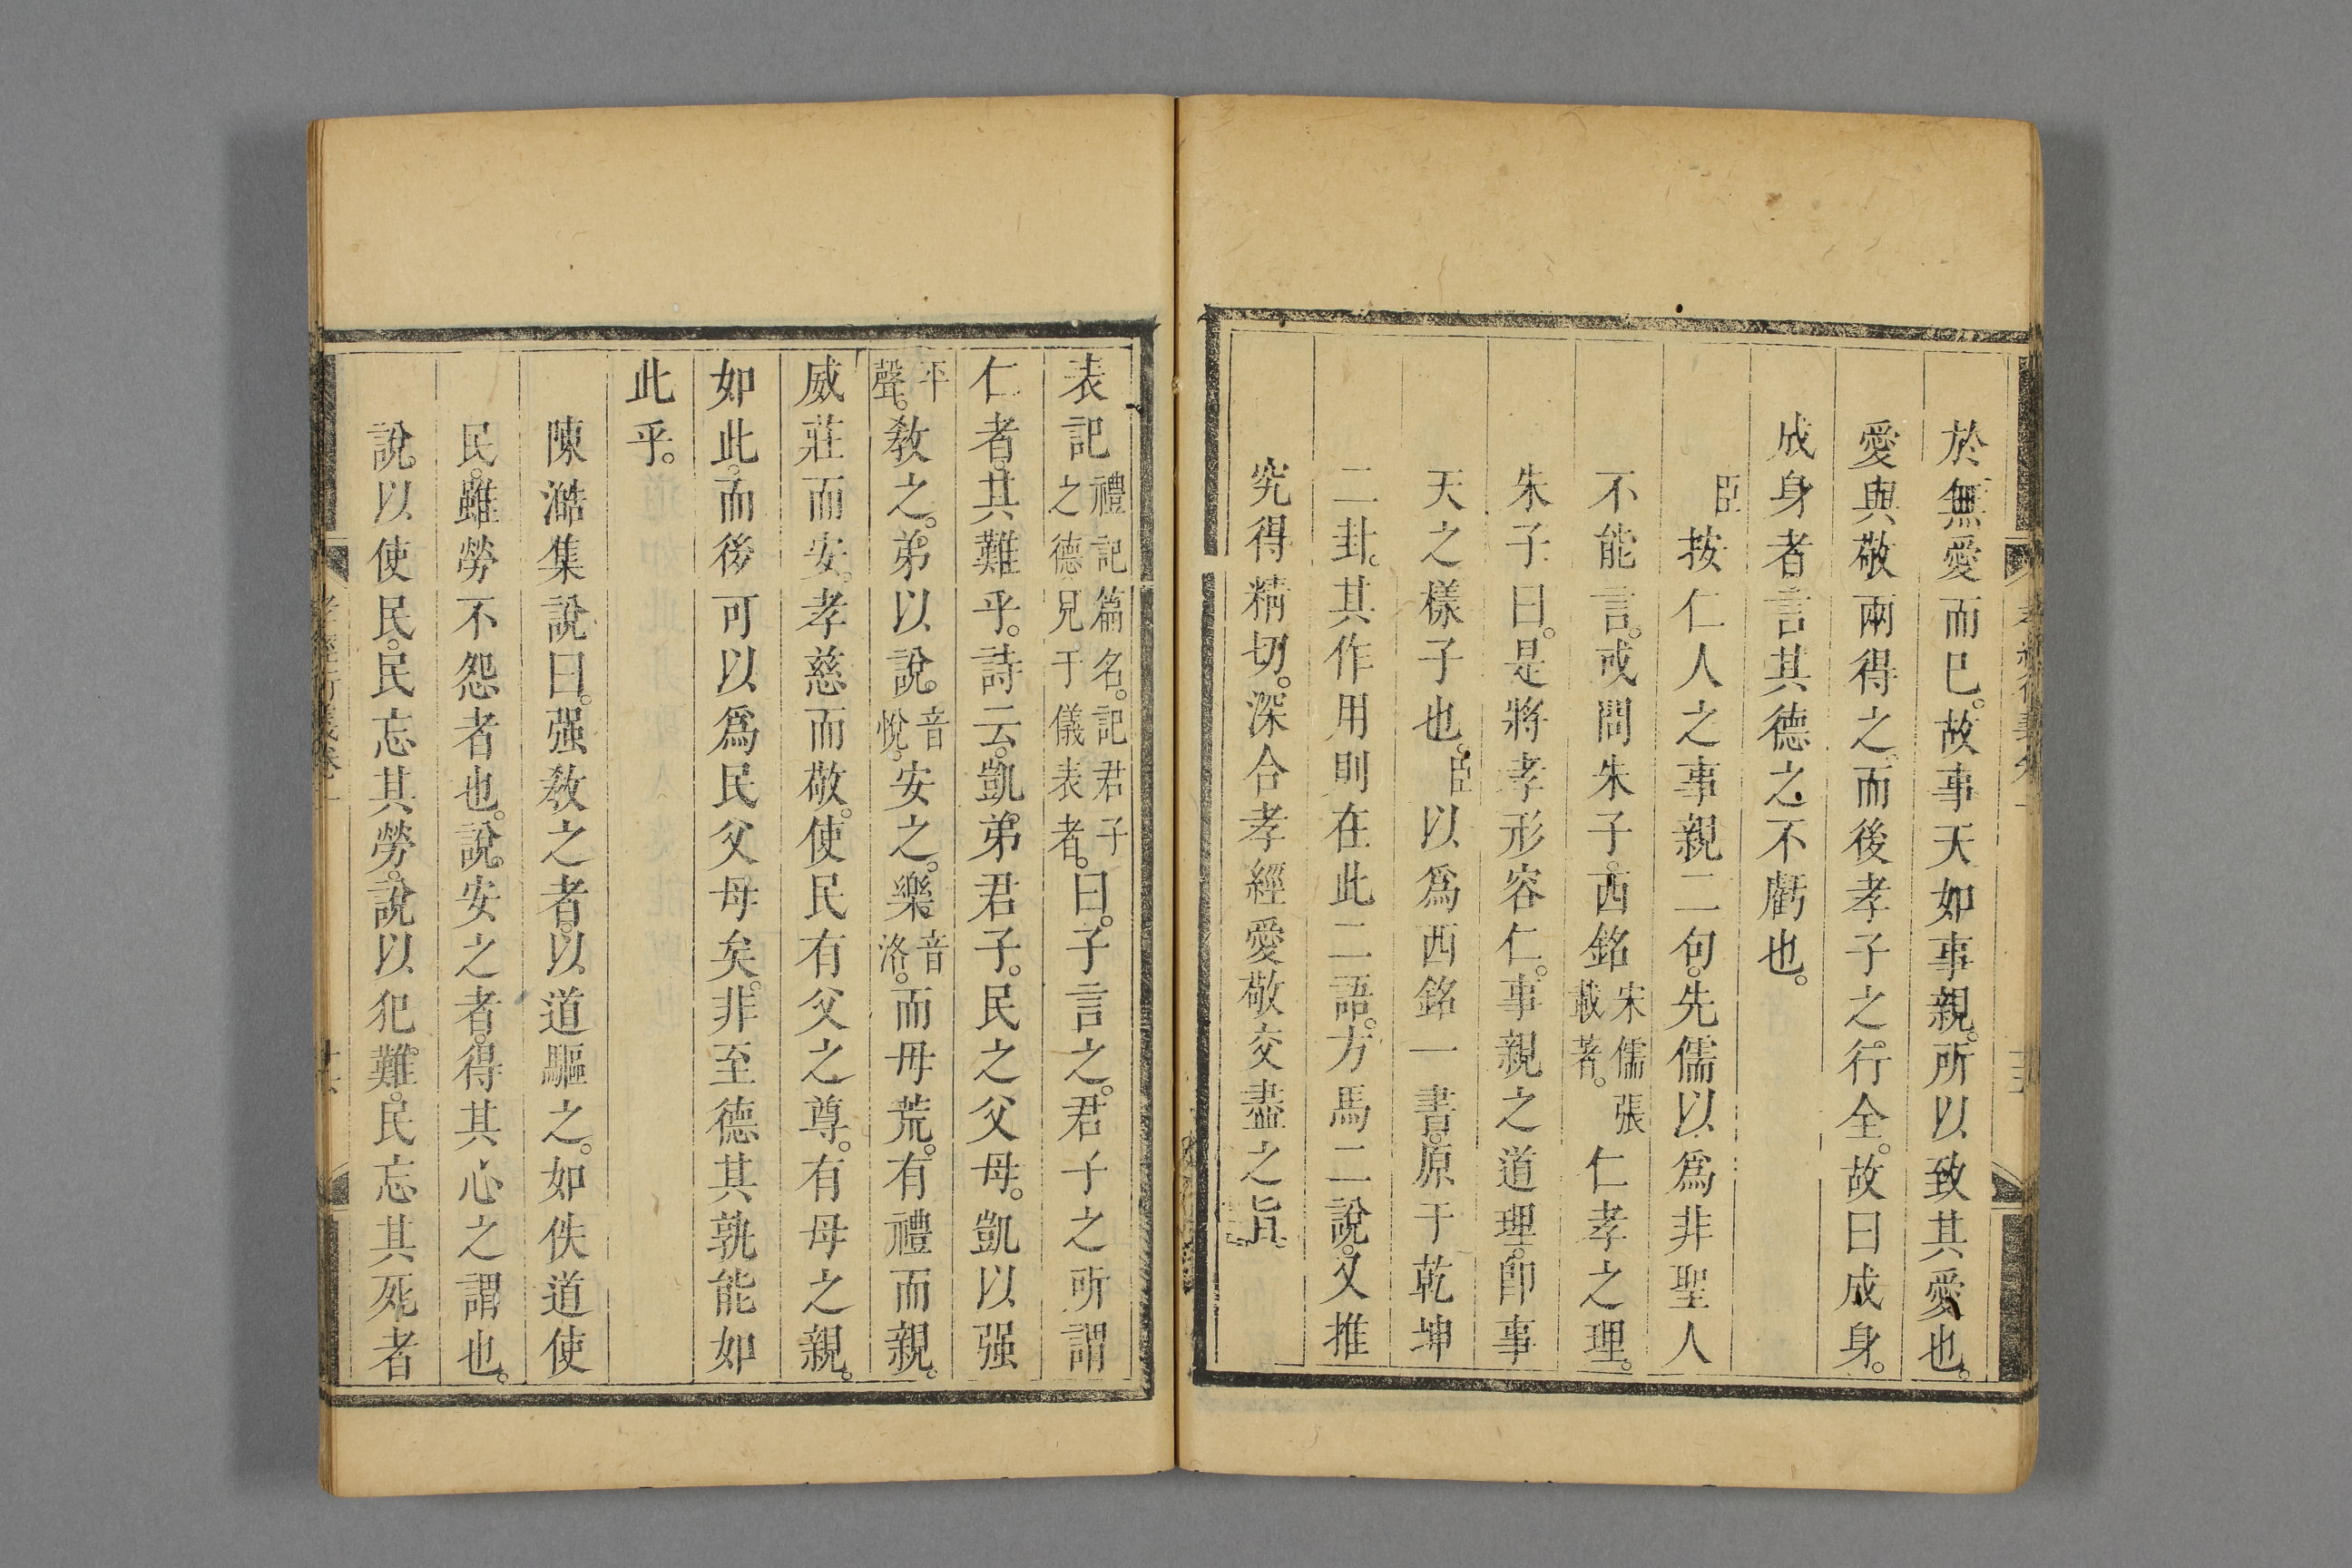 於無愛而已。故事天如事親。所以致其愛也。
愛與敬兩得之。而後孝子之行全。故曰成身。
成身者言其德之不虧也。
臣按仁人之事親二句。先儒以爲非聖人
不能言。或問朱子。西銘宋儒張載著。仁孝之理。
朱子曰。是將孝形容仁。事親之道理。卽事
天之樣子也。臣以爲西銘一書。原于乾坤
二卦。其作用則在此二語。方馬二說。又推
究得精切。深合孝經愛敬交盡之旨。
表記禮記篇名。記君子之德見于儀表者。曰。子言之。君子之所謂
仁者。其難乎。詩云。凱弟君子。民之父母。凱以强
平聲。教之。弟以說。音悅。安之。樂音洛。而毋荒。有禮而親。
威莊而安。孝慈而敬。使民有父之尊。有母之親。
如此。而後可以爲民父母矣。非至德其孰能如
此乎。
陳澔集說曰。强教之者。以道驅之。如佚道使
民。雖勞不怨者也。說安之者。得其心之謂也。
說以使民。民忘其勞。說以犯難。民忘其死者